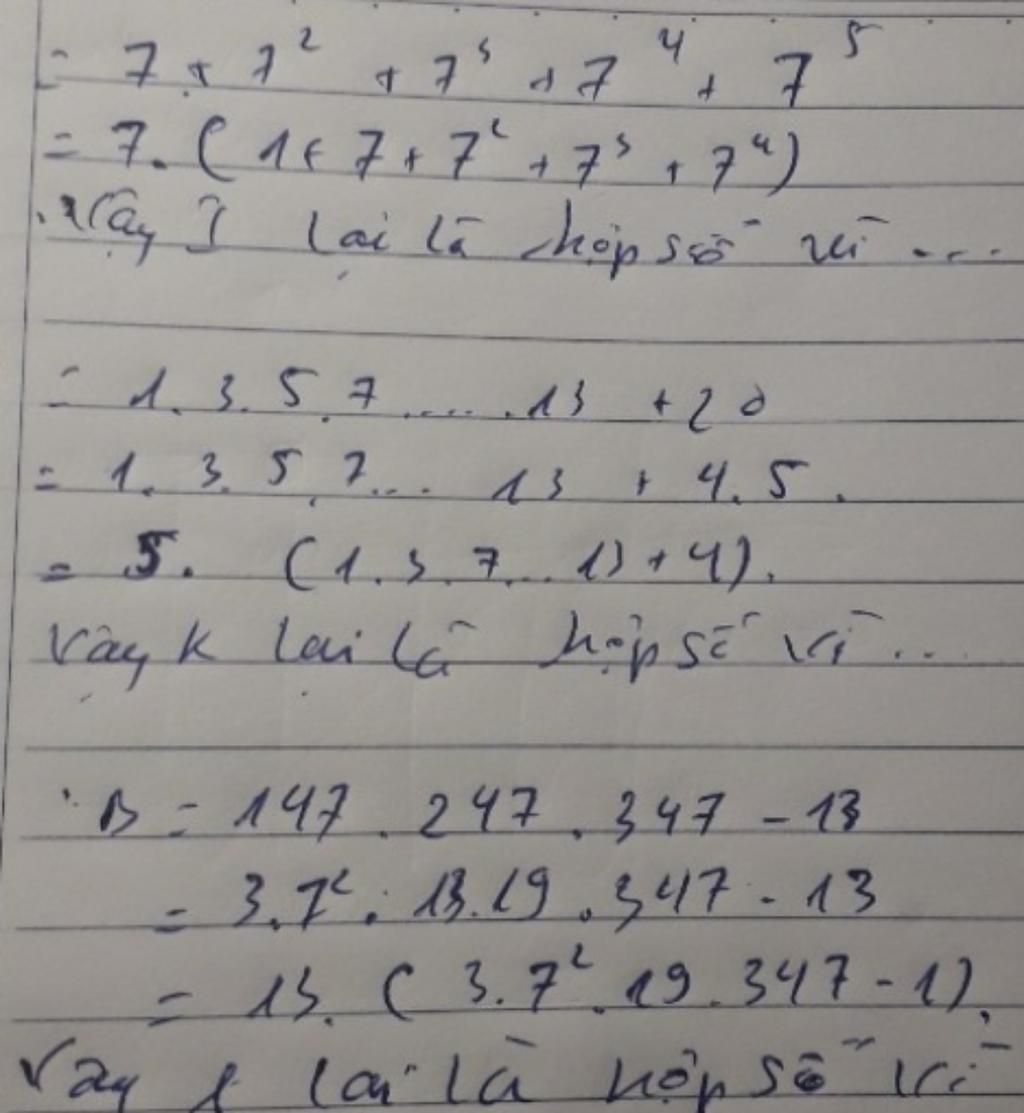 = 7 + 7² + 7³ + 7⁴ + 7⁵
= 7. ( 1+ 7 + 7² + 7³ + 7⁴ )
Vậy I lại là hợp số vì ...
= 1. 3. 5. 7 ..... .13 + 20
= 1. 3. 5. 7... 13 + 4. 5.
= 5. (1. 3. 7... 13 + 4).
Vậy k lại là hợp số vì ..
B = 147 . 247 . 347 - 13
= 3. 7² . 13. 19 . 347 - 13
= 13. ( 3. 7² . 19 . 347 - 1).
Vậy l lại là hợp số vì